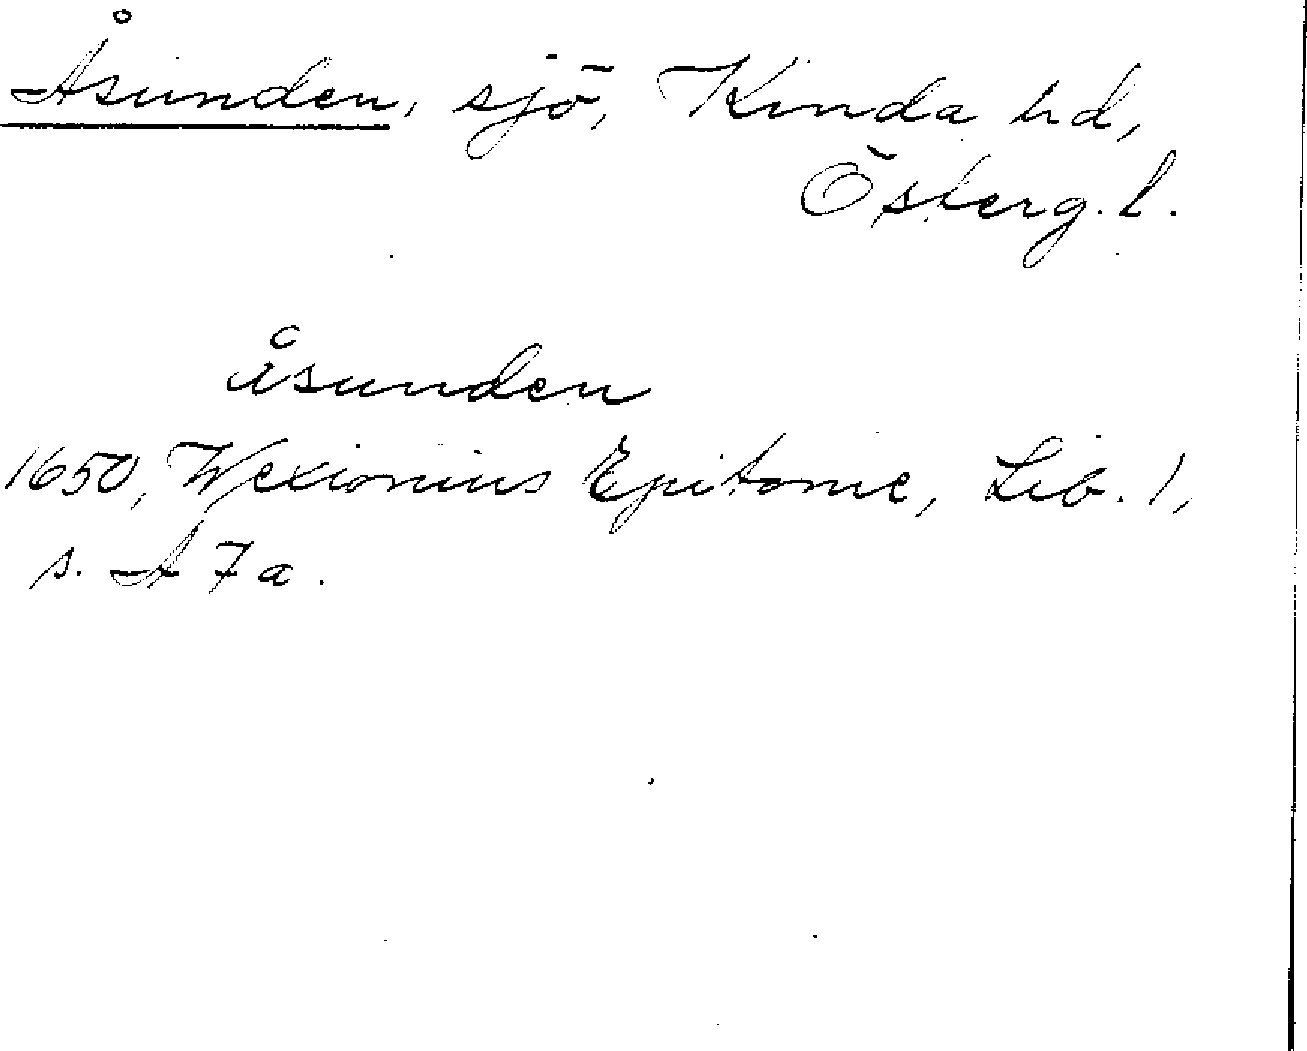 Åsunden, sjö, Kinda hd,
Österg. l.
åsunden
1650, Wexionius Epitome, Lib. 1,
s. A 7 a.